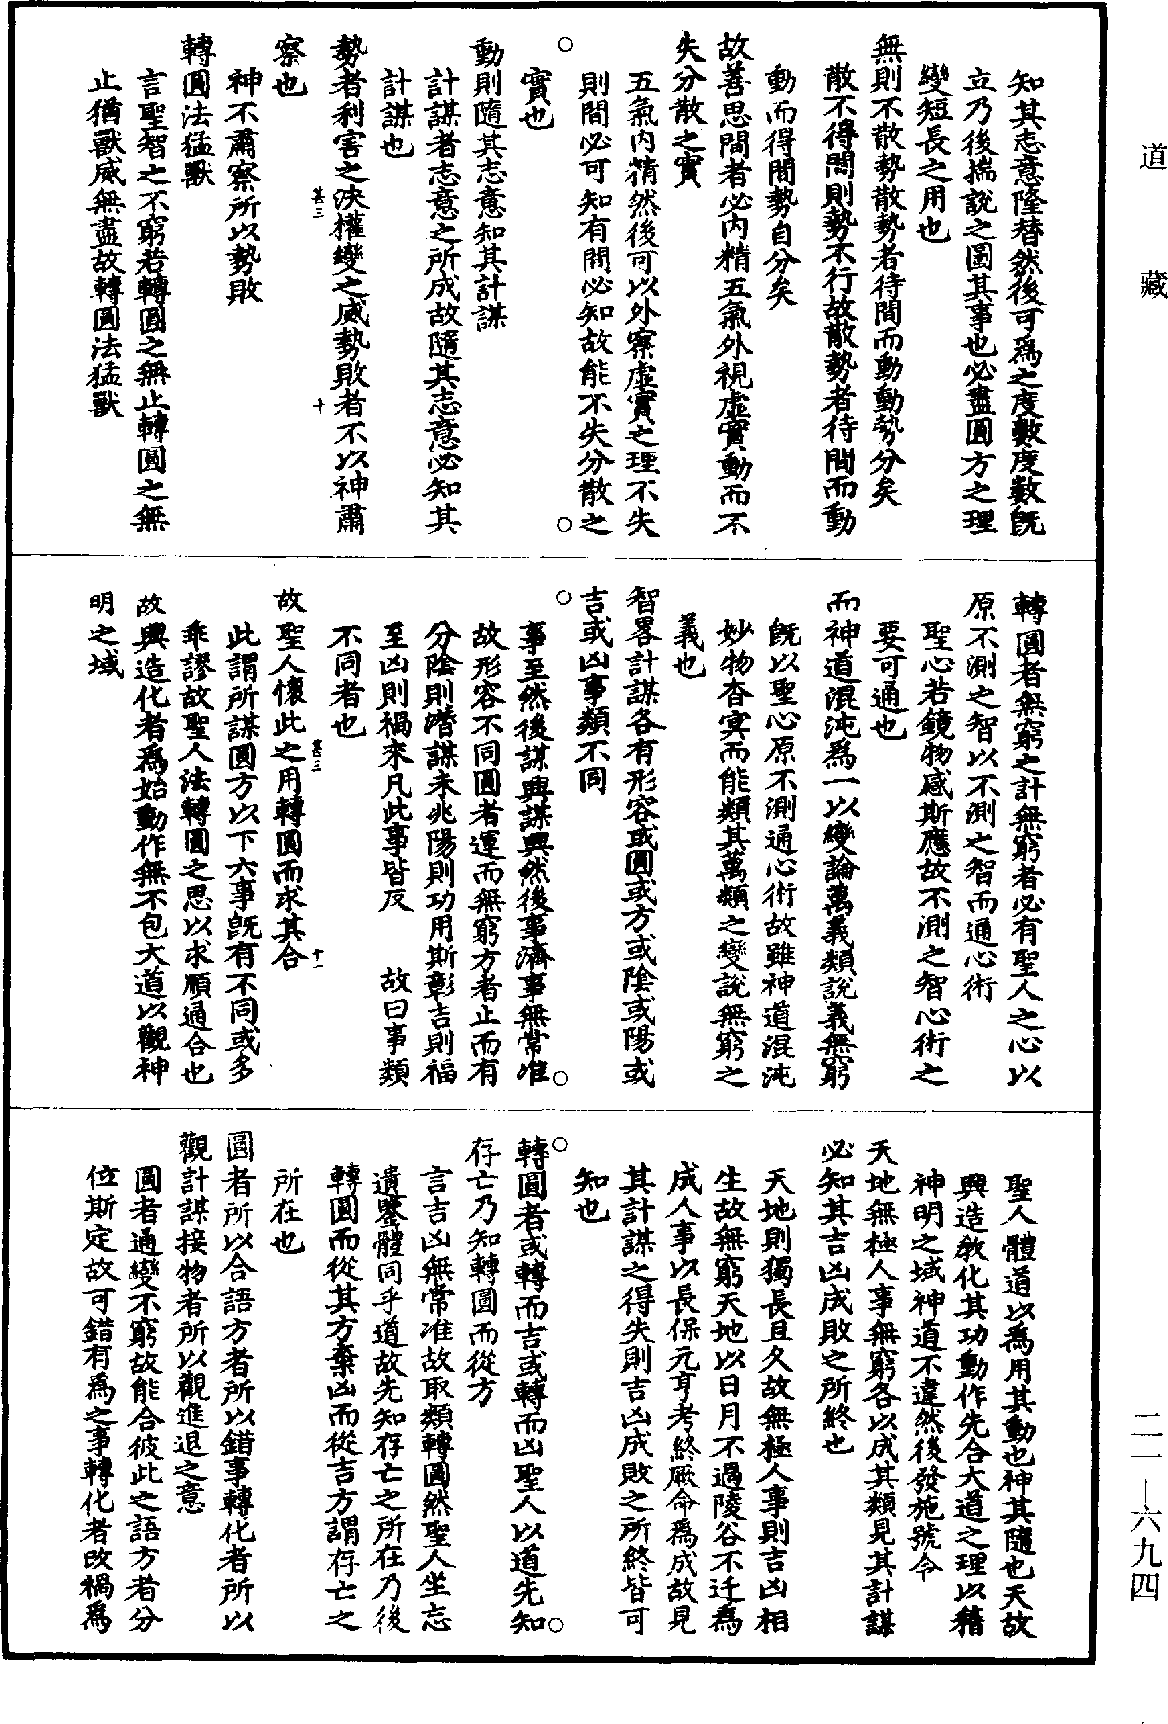 道藏
知其志意隆替然後可爲之度數度數旣
立乃後揣說之圖其事也必盡圓方之理
變短長之用也
無則不散勢散勢者待間而動動勢分矣
散不得間則勢不行故散勢者待間而動
動而得間勢自分矣
故善思間者必內精五氣外視虛實動而不
失分散之實
五氣內精然後可以外察虛實之理不失
則間必可知有間必知故能不失分散之
實也
動則隨其志意知其計謀
計謀者志意之所成故隨其志意必知其
計謀也
勢者利害之決權變之威勢敗者不以神肅
察也
神不肅察所以勢敗
轉圓法猛獸
言聖智之不窮若轉圓之無止轉圓之無
止猶獸威無盡故轉圓法猛獸
甚三
十
轉圓者無窮之計無窮者必有聖人之心以
原不測之智以不測之智而通心術
聖心若鏡物感斯應故不測之智心術之
要可通也
而神道混沌爲一以變論萬義類說義無窮
旣以聖心原不測通心術故雖神道混沌
妙物杳冥而能類其萬類之變說無窮之
義也
智畧計謀各有形容或圓或方或陰或陽或
吉或凶事類不同
事至然後謀興謀興然後事濟事無常准
故形容不同圓者運而無窮方者止而有
分陰則潛謀未兆陽則功用斯彰吉則福
至凶則禍來凡此事皆反 故曰事類
不同者也
故聖人懷此之用轉圓而求其合
此謂所謀圓方以下六事旣有不同或多
乖謬故聖人法轉圓之思以求順通合也
故興造化者爲始動作無不包大道以觀神
明之域
甚三
十一
聖人體道以爲用其動也神其隨也天故
興造敎化其功動作先合大道之理以稽
神明之域神道不違然後發施號令
天地無極人事無窮各以成其類見其計謀
必知其吉凶成敗之所終也
天地則獨長且久故無極人事則吉凶相
生故無窮天地以日月不過陵谷不迁爲
成人事以長保元亨考終厥命爲成故見
其計謀之得失則吉凶成敗之所終皆可
知也
轉圓者或轉而吉或轉而凶聖人以道先知
存亡乃知轉圓而從方
言吉凶無常准故取類轉圓然聖人坐忘
遺鑒體同乎道故先知存亡之所在乃後
轉圓而從其方棄凶而從吉方謂存亡之
所在也
圓者所以合語方者所以錯事轉化者所以
觀計謀接物者所以觀進退之意
圓者通變不窮故能合彼此之語方者分
位斯定故可錯有爲之事轉化者改禍爲
二一—六九四